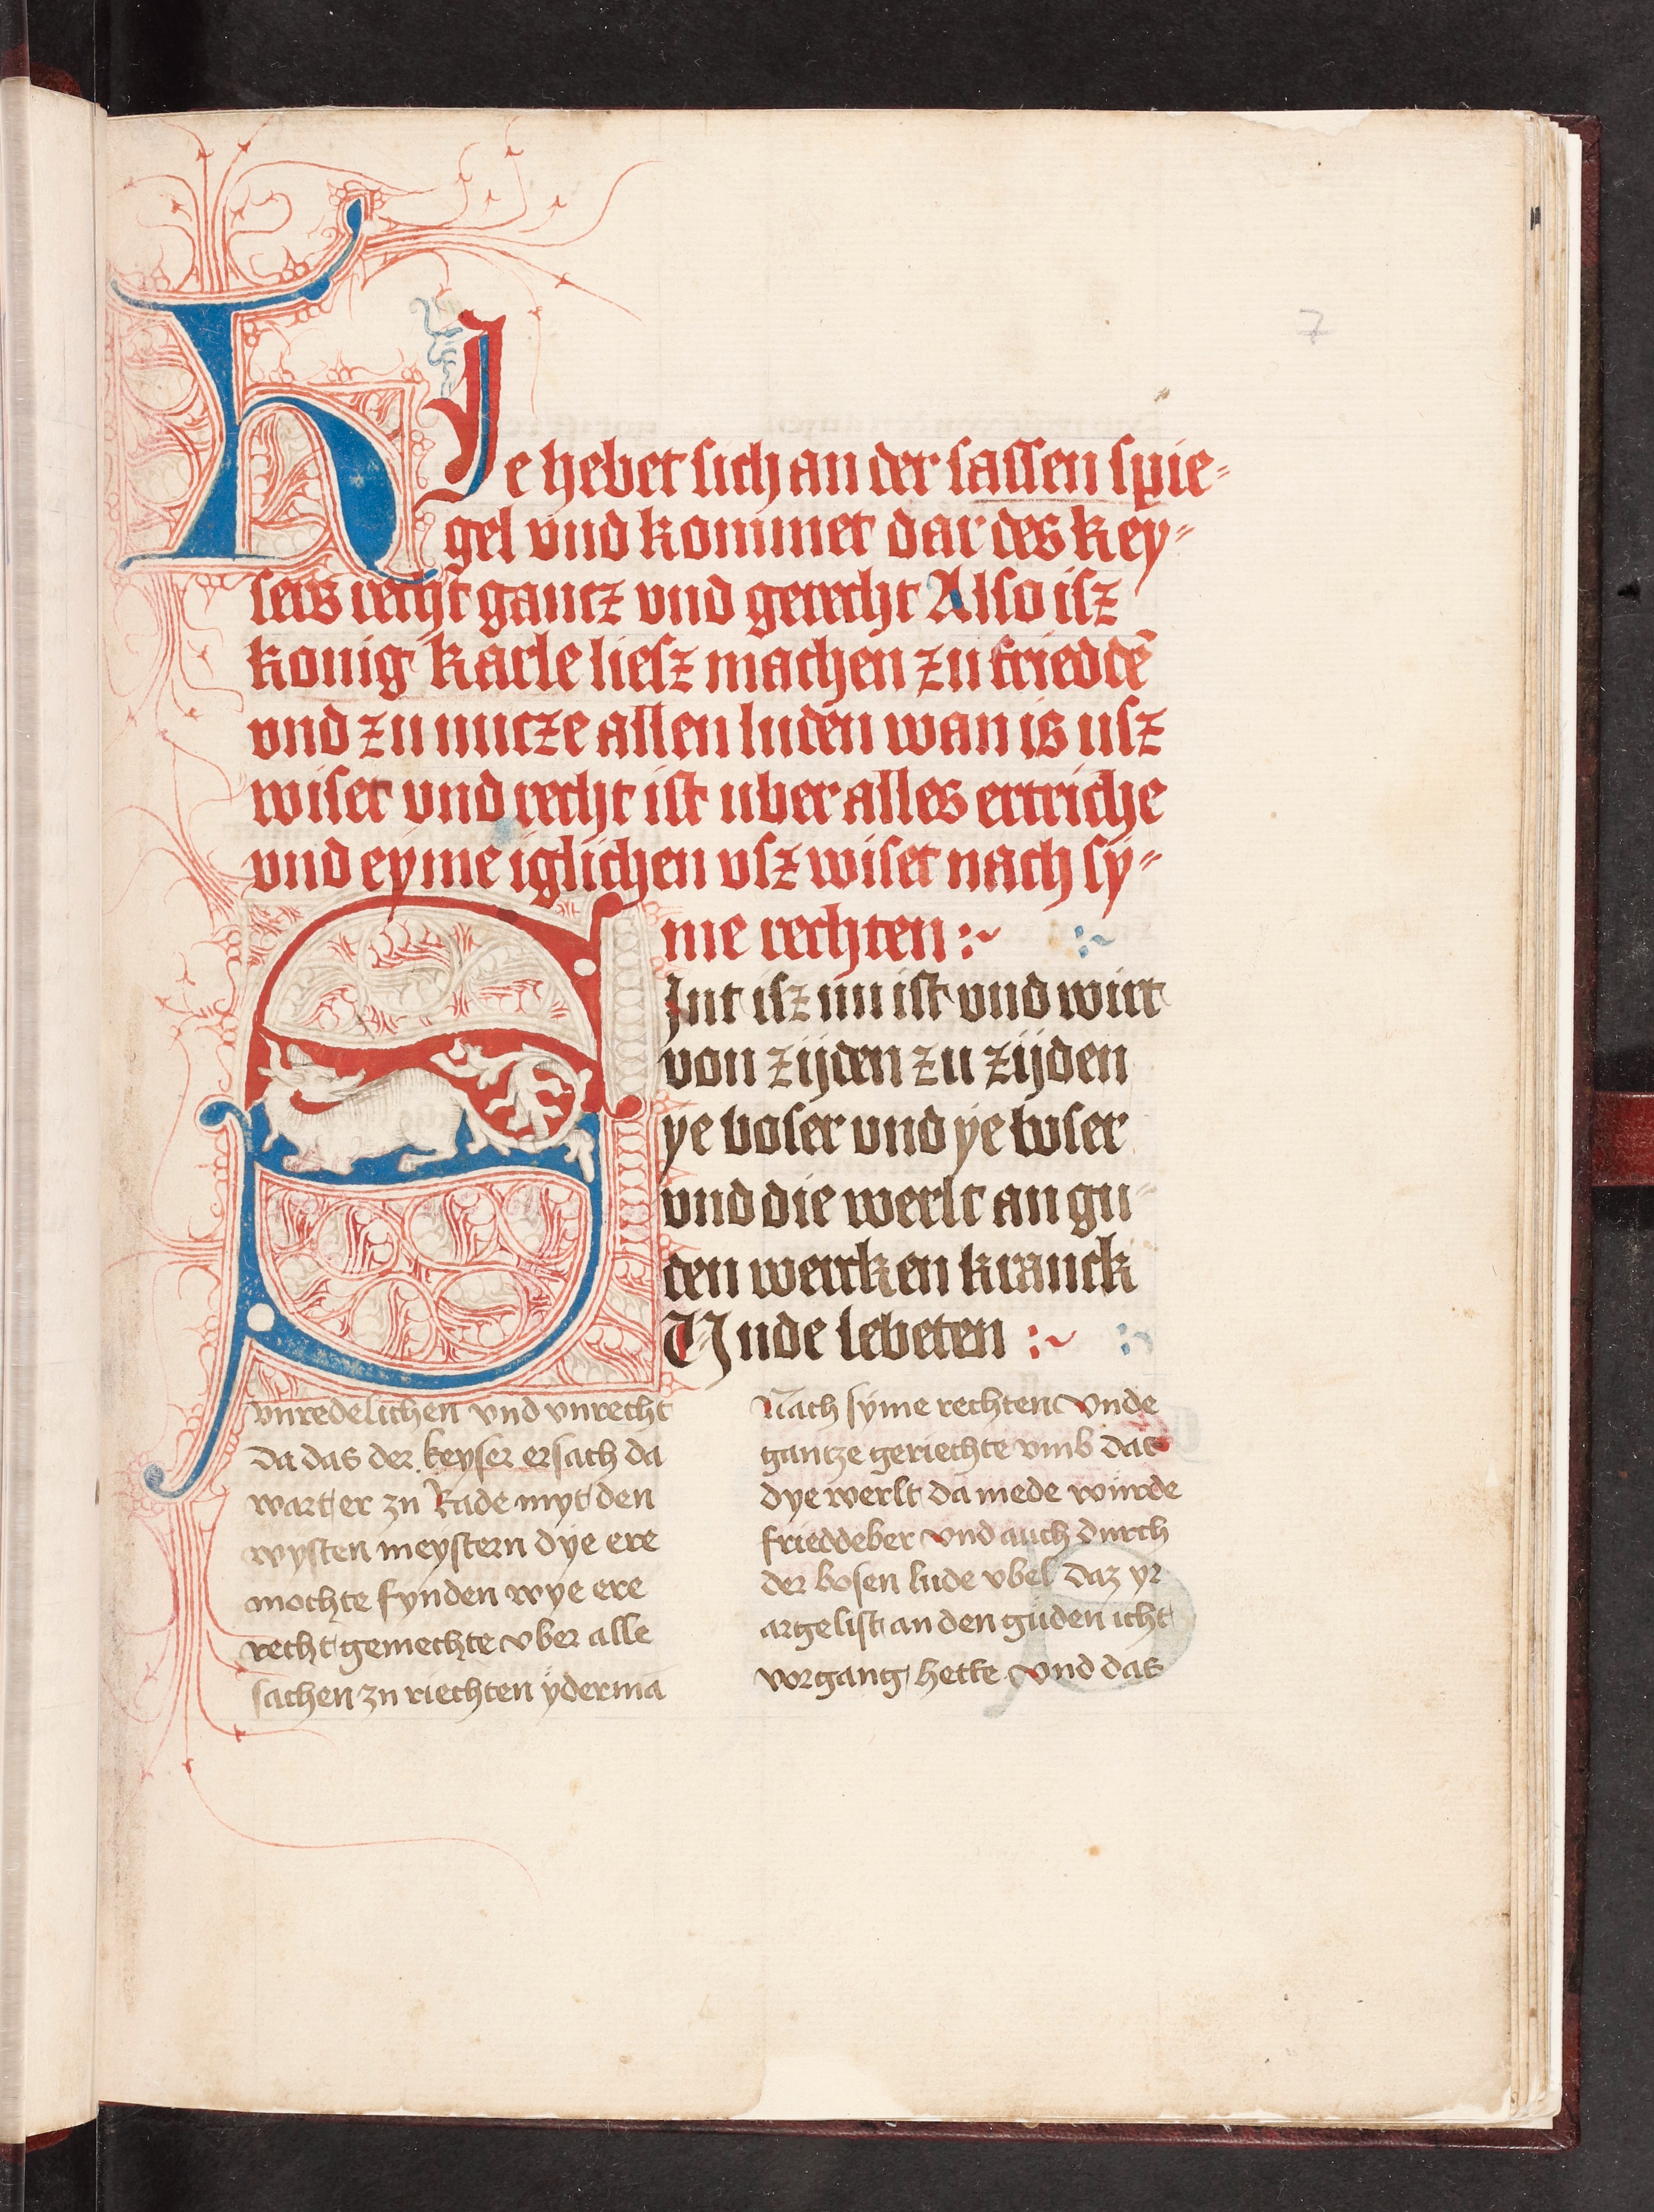 7
HIe hebet sich an der sassen spie-
gel vnd kommet dar des key-
sers recht gantz vnd gerecht Also isz
konig karle liesz machen zu friddē
vnd zu nutze allen luden wan is usz
wiset vnd recht ist uber alles ertriche
vnd eyme iglichen vsz wiset nach sy-
me rechten :~ :~
SInt isz nu ist vnd wirt
von zijden zu zijden
ye boser vnd ye boser
vnd die werlt an gu-
den wercken kranck
Unde lebeten :~ :~
vnredelichen vnd vnrecht
Da das der keyser ersach da
wart er zu Rade myt den
wysten meystern dye ere
mochte fynden wye ere
recht gemechte vber alle
sachen zu riechten ÿdermā
Nach syme rechten vnde
gantze geriechte vmb dat
dye werlt da mede wurde
frieddeber vnd auch durch
der bosen lude vbel daz yr
argelist an den guden icht
vorgang hette vnd das